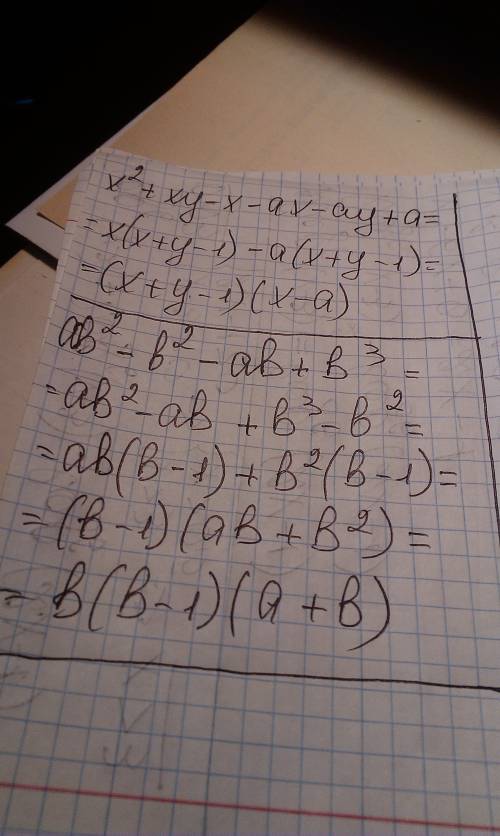 x² + xy - x - ax - ay + a =
= x(x + y - 1) - a(x + y - 1) =
= (x + y - 1)(x - a)
ab² - b² - ab + b³ =
= ab² - ab + b³ - b² =
= ab(b - 1) + b²(b - 1) =
= (b - 1)(ab + b²) =
= b(b - 1)(a + b)